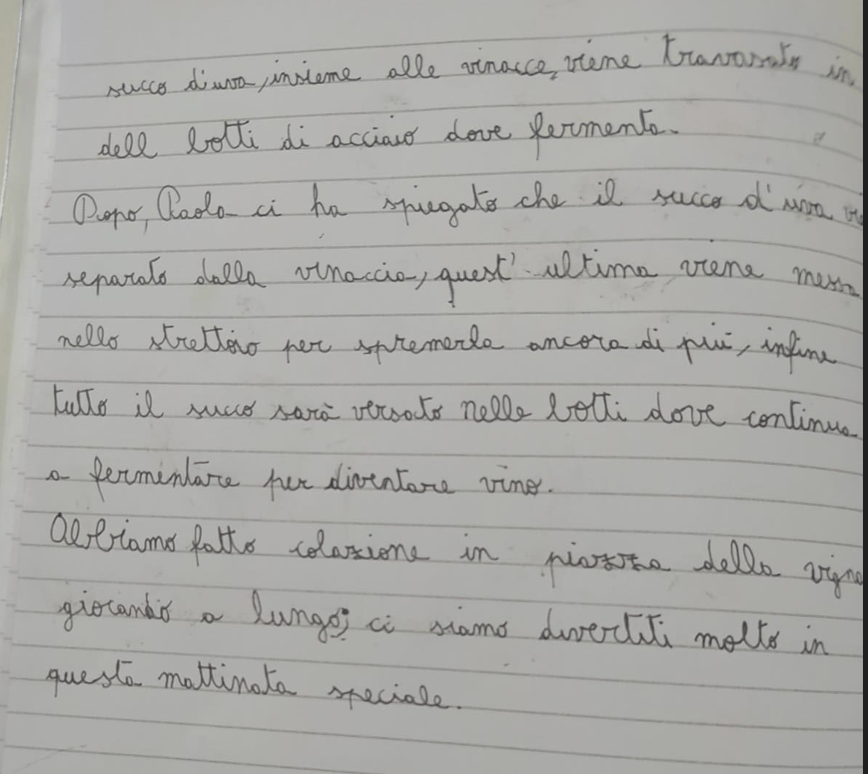 succo d'uva, insieme alle vinacce, viene travasato in
dell botti di acciaio dove fermenta.
Dopo, Paola ci ha spiegato che il succo d'uva
separato dalla vinaccia, quest'ultima viene messa
nello strettoio per spremerla ancora di più, infine
tutto il succo sarà versato nelle botti dove continua
a fermentare per diventare vino.
Abbiamo fatto colazione in piazza della vigna
giocando a lungo; ci siamo divertiti molto in
questa mattinata speciale.